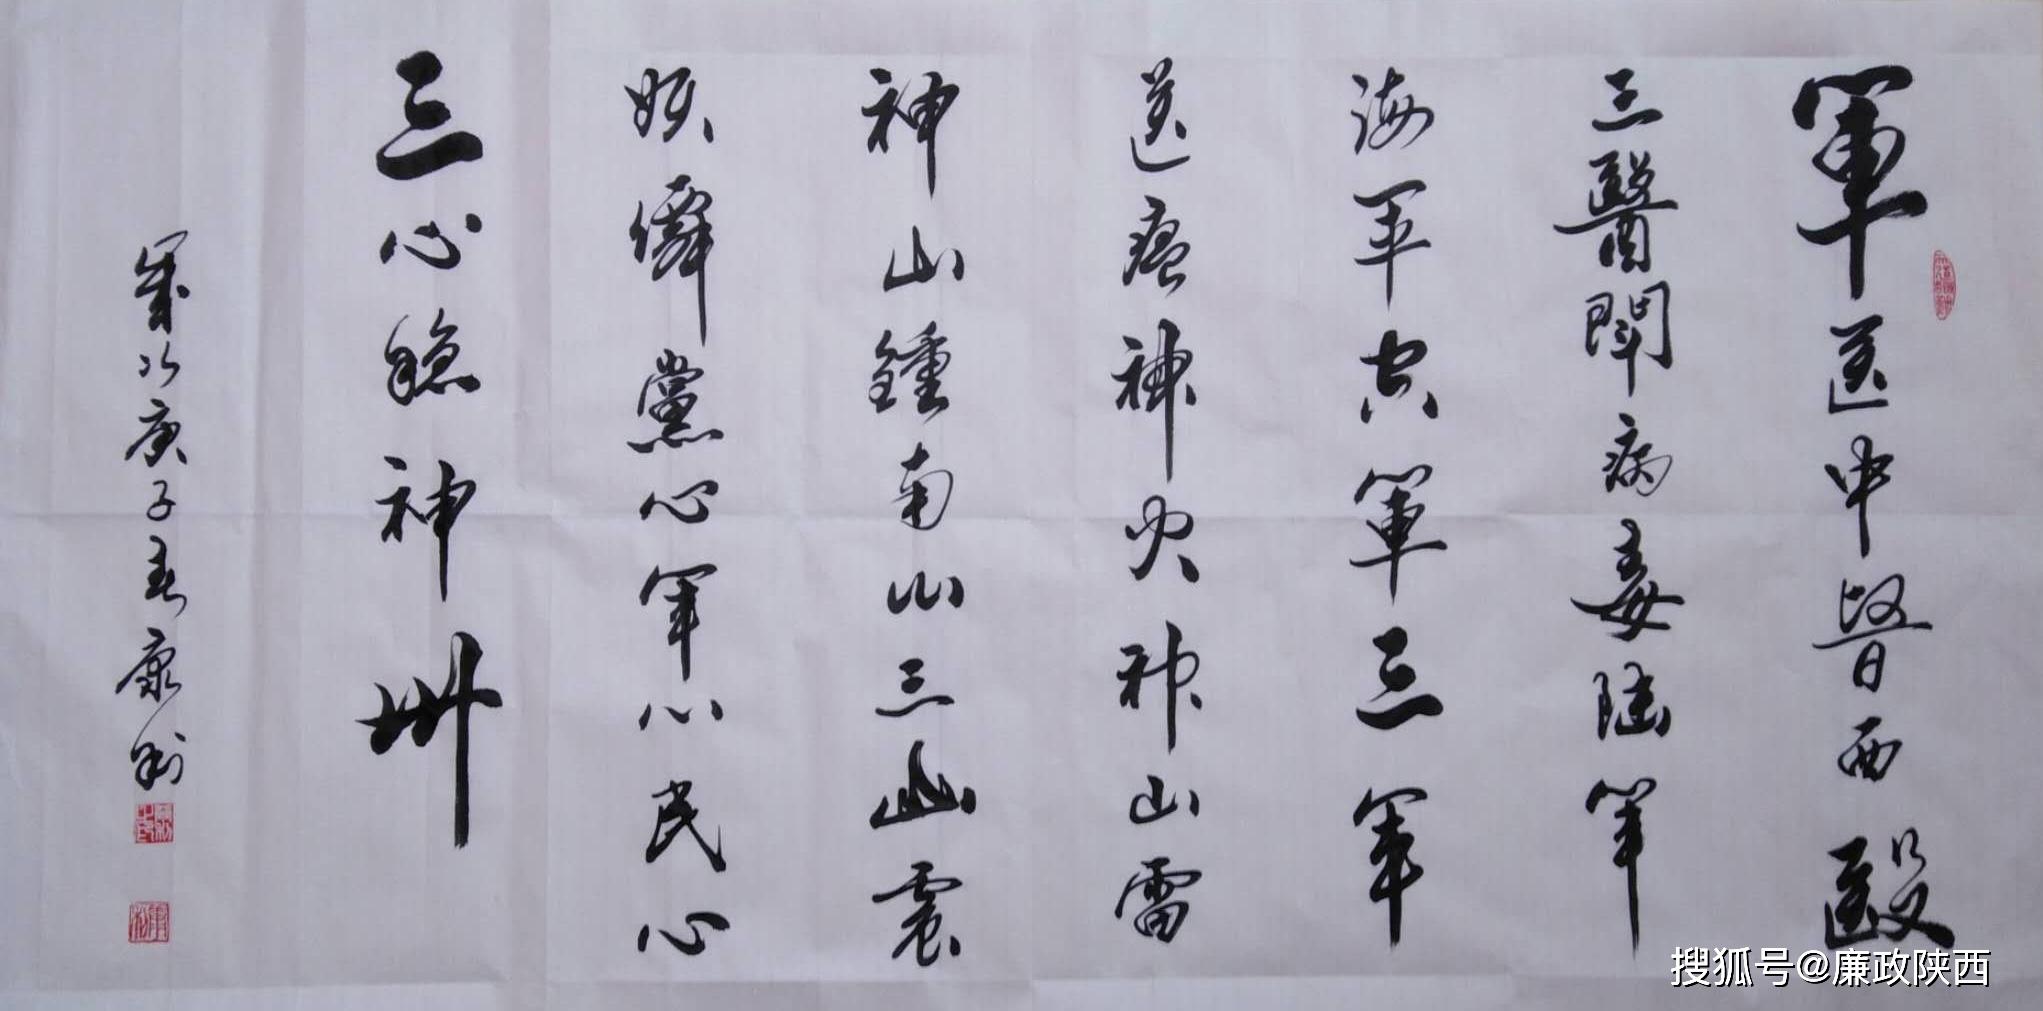 軍医中醫西醫
三醫鬥病毒陸軍
海軍空軍三軍
送瘟神火神山雷
神山鍾南山三山震
妖孽黨心軍心民心
三心穩神州
歲次庚子春康利
搜狐号@廉政陕西